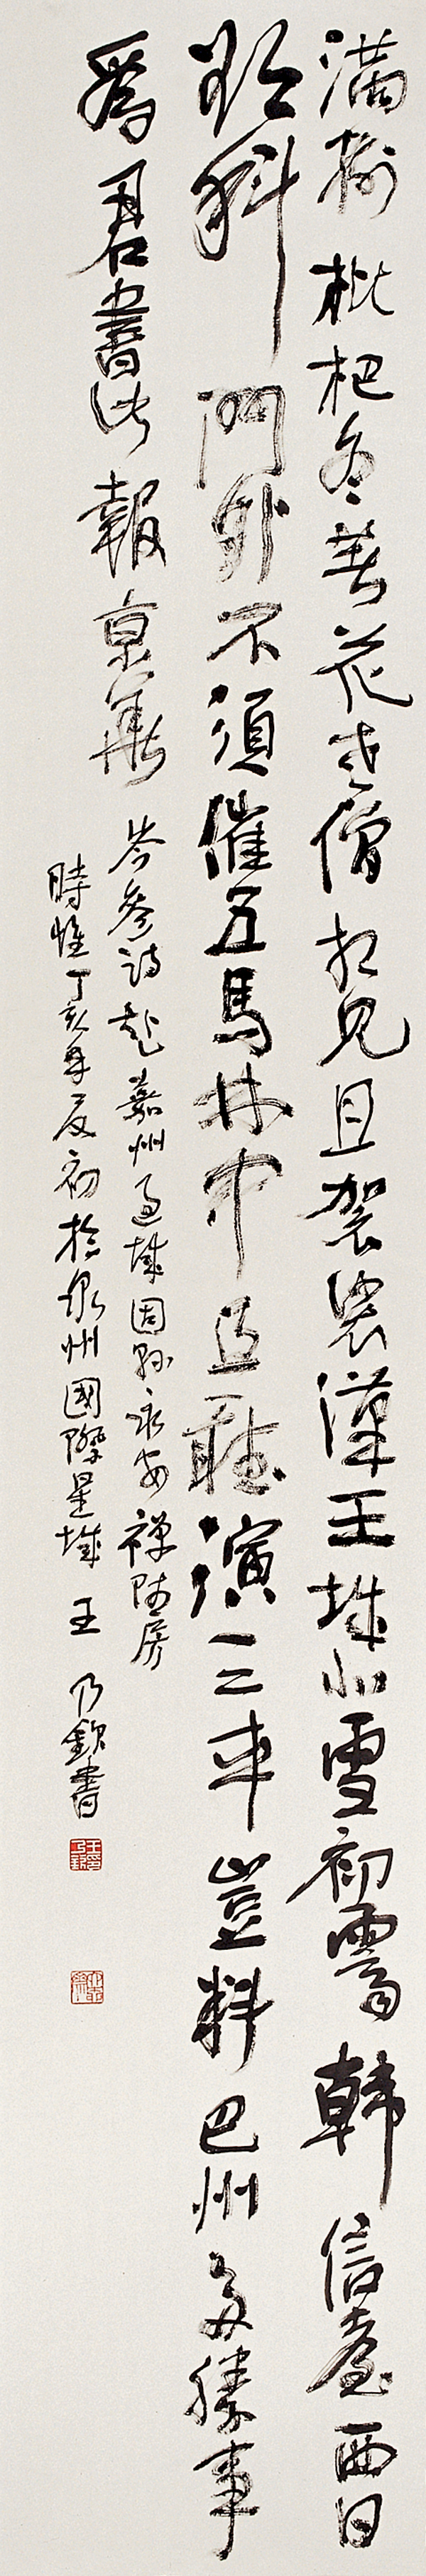 滿樹枇杷冬著花老僧相見具袈裟漢王城北雪初霽韓信臺西日
欲斜門外不須催五馬林中且聽演三車豈料巴州多勝事
為君書此報京華
岑參詩赴嘉州過城固縣永安禪師房
時惟丁亥年夏初於泉州國際星城 王乃欽書